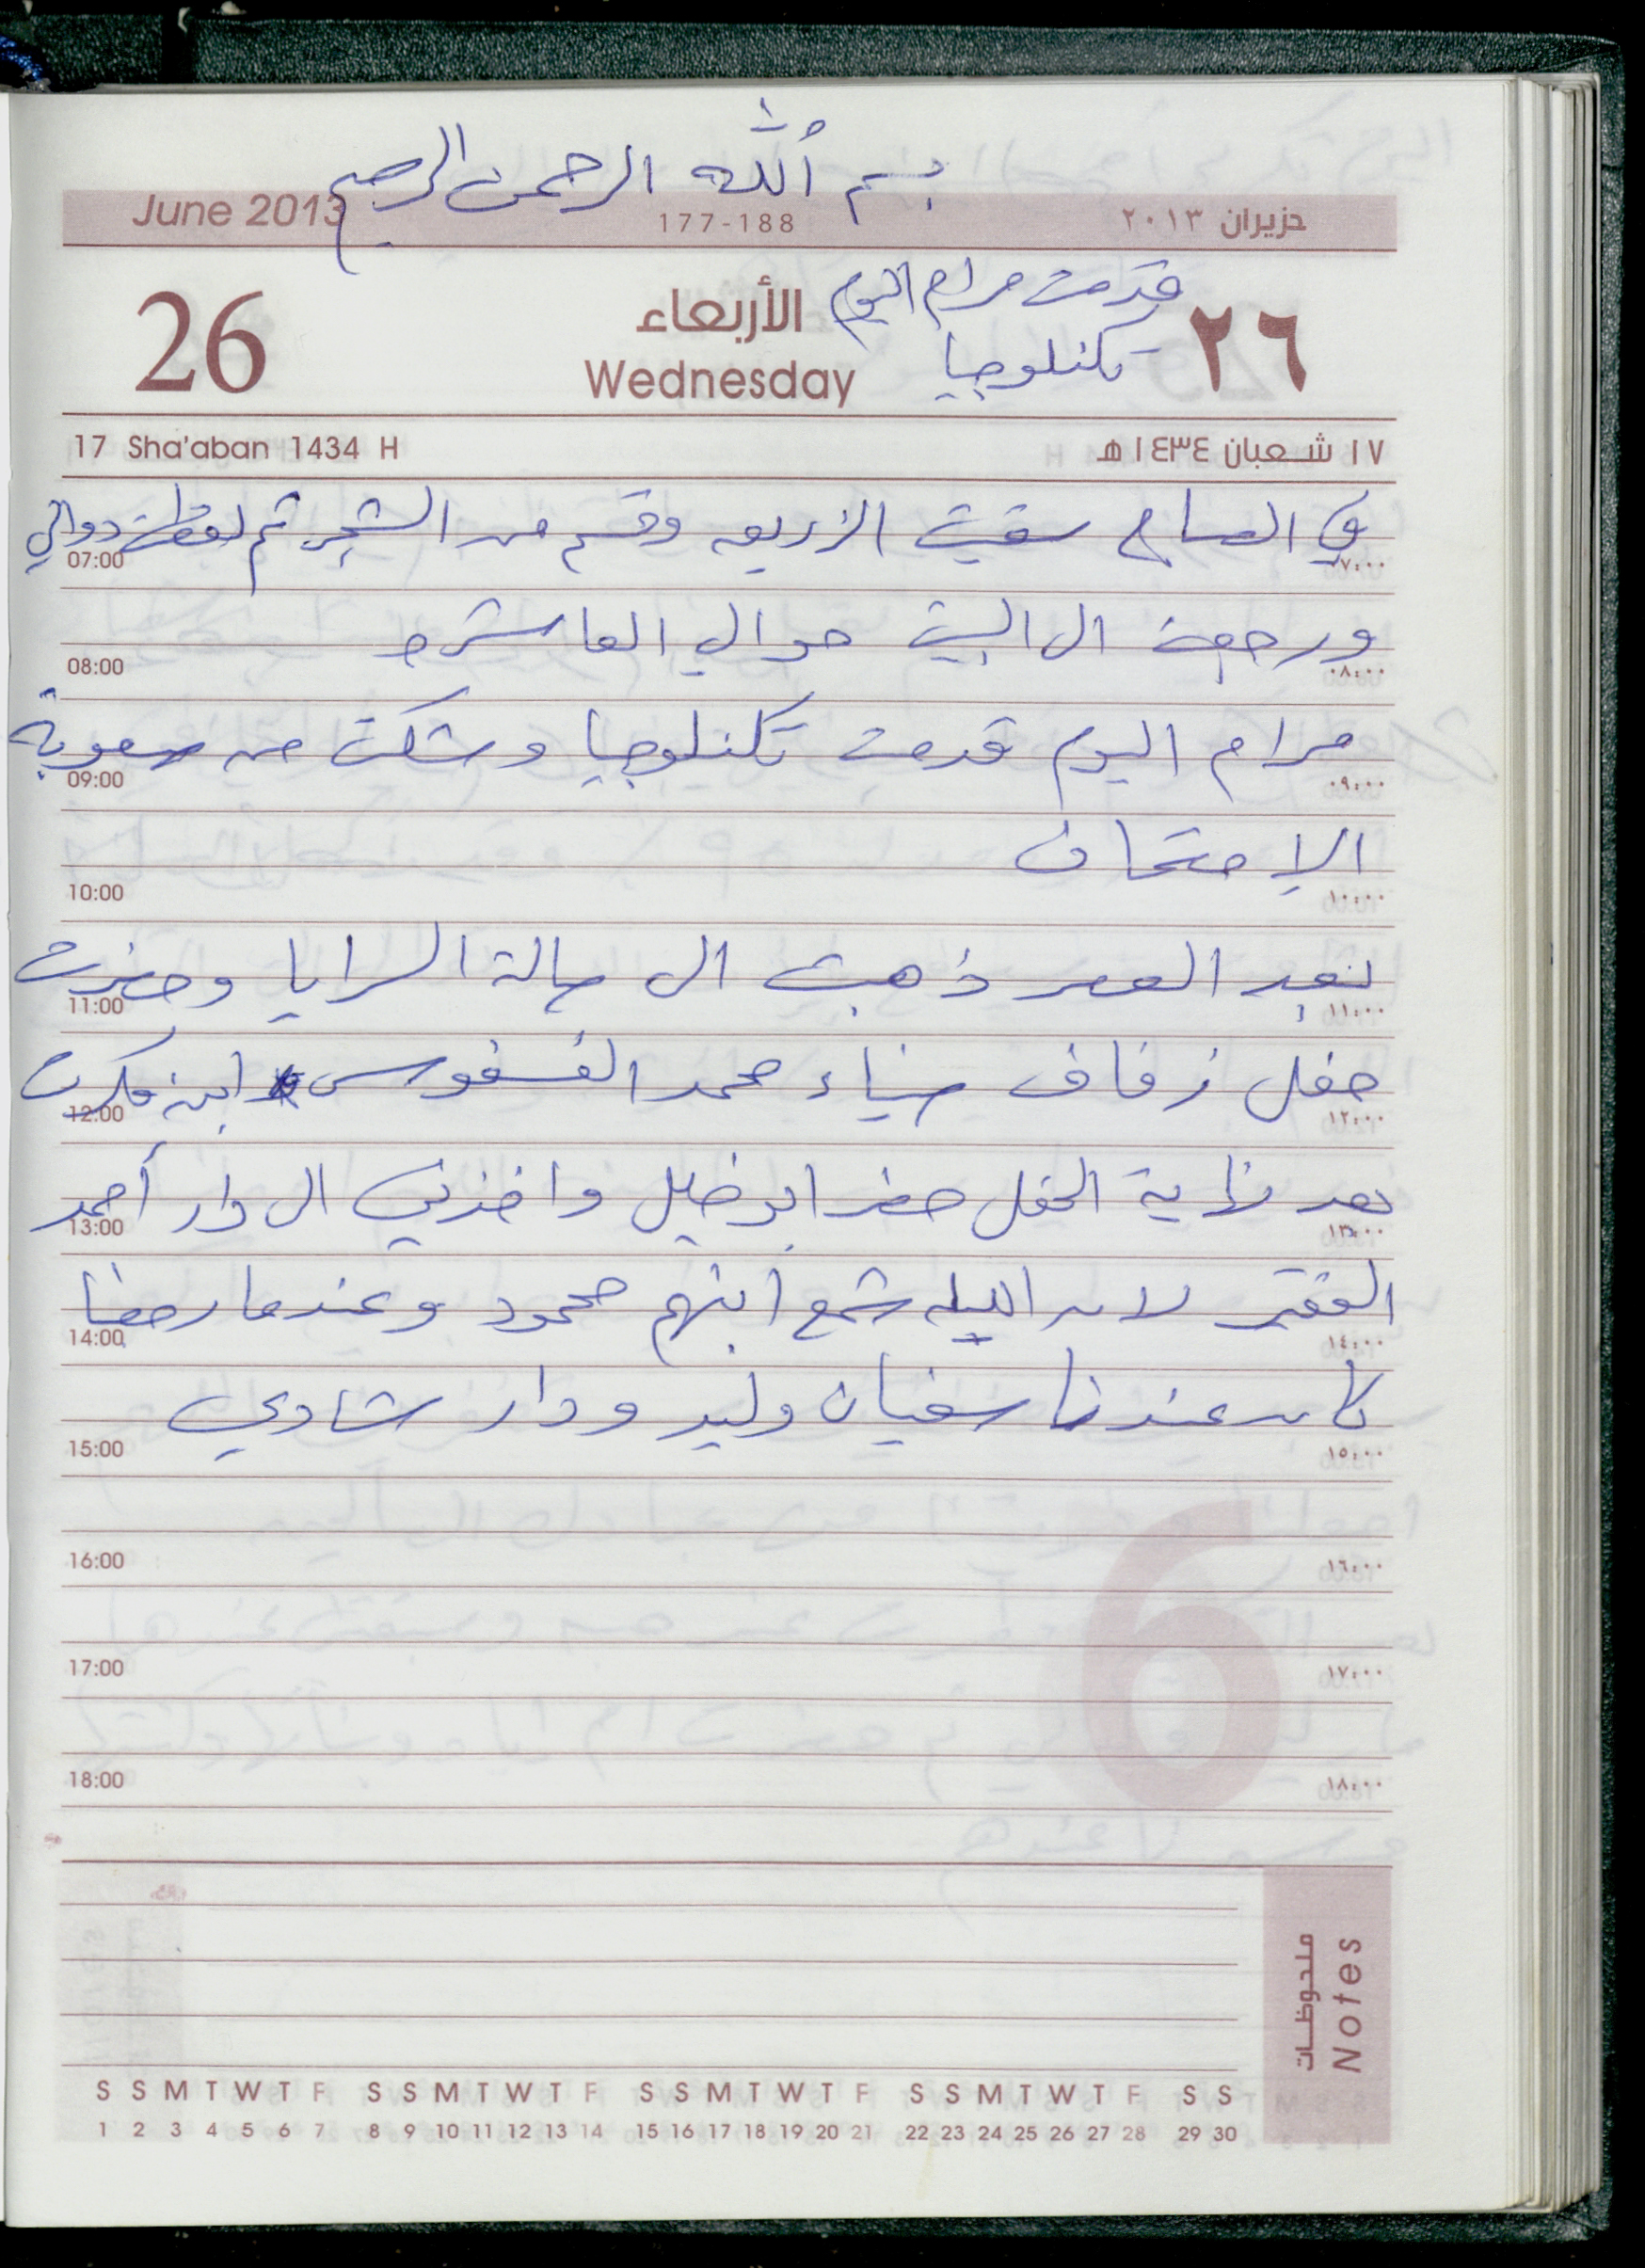 بسم الله الرحمن الرحيم
June 2013 177-188 حزيران ٢٠١٣
قدمت مرام اليوم
تكنلوجيا
26 الأربعاء ٢٦
Wednesday
17 Sha'aban 1434 H ١٧ شعبان ١٤٣٤ هـ
في الصباح سقيت الزريعه وقسم من الشجر ثم لقطت دوالي
07:00 ٠٧:٠٠
ورجعت الى البيت حوالي العاشره
08:00 ٠٨:٠٠
مرام اليوم قدمت تكنلوجيا وشكت من صعوبة
09:00 ٠٩:٠٠
الإمتحان
10:00 ١٠:٠٠
بعد العصر ذهبت الى صالة السرايا وحضرت
11:00 ١١:٠٠
حفل زفاف ضياء محمد الفسفوس ابن
12:00 ١٢:٠٠
بعد نهاية الحفل حضر ابو خليل واخذني الى دار أحمد
13:00 ١٣:٠٠
الفقير لان الليله شمع ابنهم محمود وعندما رجعنا
14:00 ١٤:٠٠
كان عندنا سفيان وليد ودار شادي
15:00 ١٥:٠٠
16:00 ١٦:٠٠
17:00 ١٧:٠٠
18:00 ١٨:٠٠
ملحوظات
Notes
S S M T W T F S S M T W T F S S M T W T F S S M T W T F S S
1 2 3 4 5 6 7 8 9 10 11 12 13 14 15 16 17 18 19 20 21 22 23 24 25 26 27 28 29 30